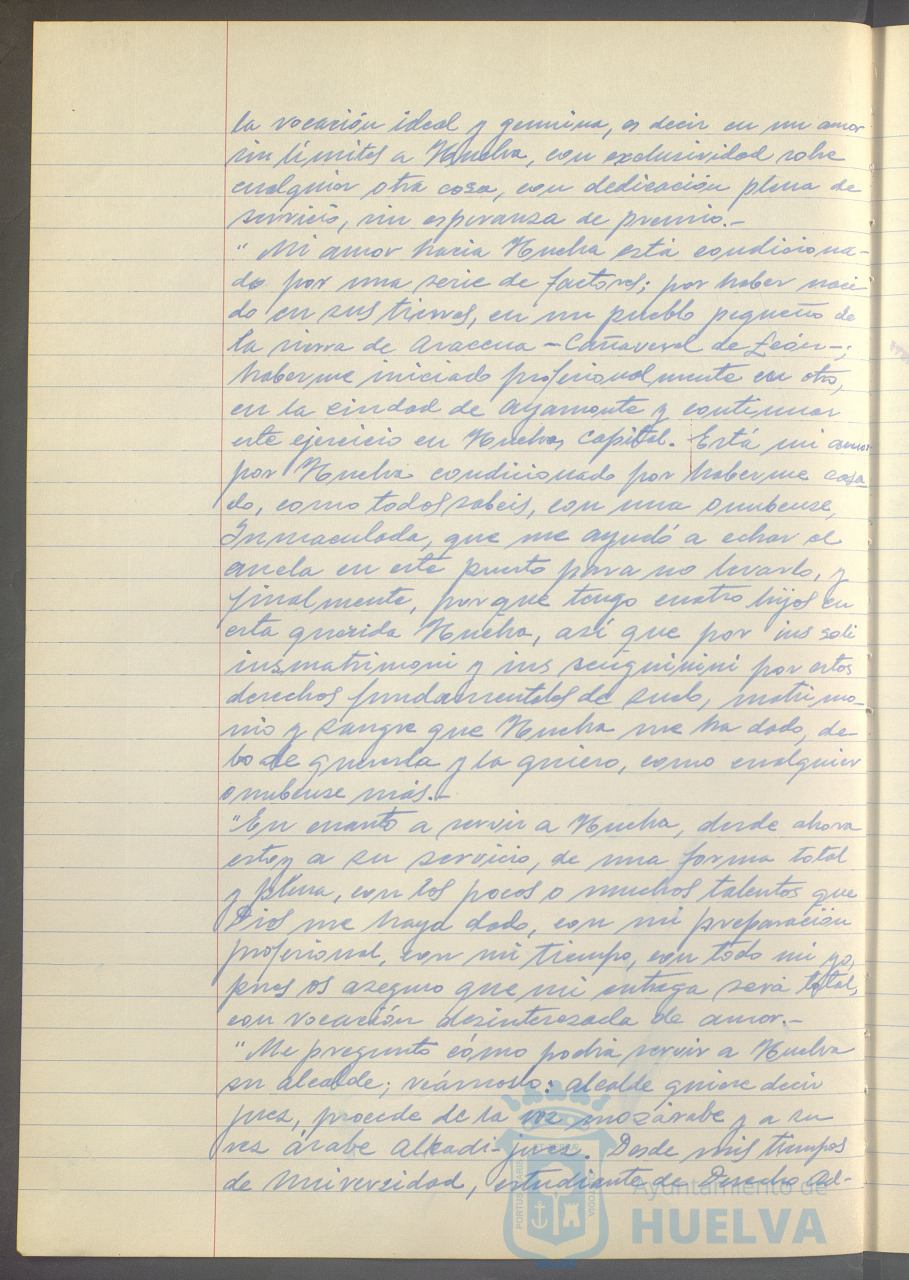 la vocación ideal y genuina, es decir en un amor
sin límites a Huelva, con exclusividad sobre
cualquier otra cosa, con dedicación plena de
servicio, sin esperanza de premio.-
"Mi amor hacia Huelva está condiciona-
do por una serie de factores; por haber naci
do en sus tierras, en un pueblo pequeño de
la sierra de Aracena -Cañaveral de León-;
haberme iniciado profesionalmente en otro,
en la ciudad de Ayamonte y continuar
este ejercicio en Huelva, Capital. Está mi amor
por Huelva condicionado por haberme casa
do, como todos sabeis, con una onubense,
Inmaculada, que me ayudó a echar el
ancla en este puerto para no levarla, y
finalmente, porque tengo cuatro hijos en
esta querida Huelva, así que por ius soli
ius matrimoni y ius senguinini por estos
derechos fundamentales de suelo, matrimo-
nio y sangre que Huelva me ha dado, de-
bo de quererla y la quiero, como cualquier
onubense más.-
"En cuanto a servir a Huelva, desde ahora
estoy a su servicio, de una forma total
y plena, con los pocos o muchos talentos que
Dios me haya dado, con mi preparación
profesional, con mi tiempo, con todo mi yo,
pues os aseguro que mi entrega será total,
con vocación desinteresada de amor.-
"Me pregunto cómo podría servir a Huelva
su alcalde; veámoslo: alcalde quiere decir
juez, procede de la voz mozárabe y a su
vez árabe alkadi-juez. Desde mis tiempos
de Universidad, estudiante de Derecho Ad-
Ayuntamiento de
HUELVA